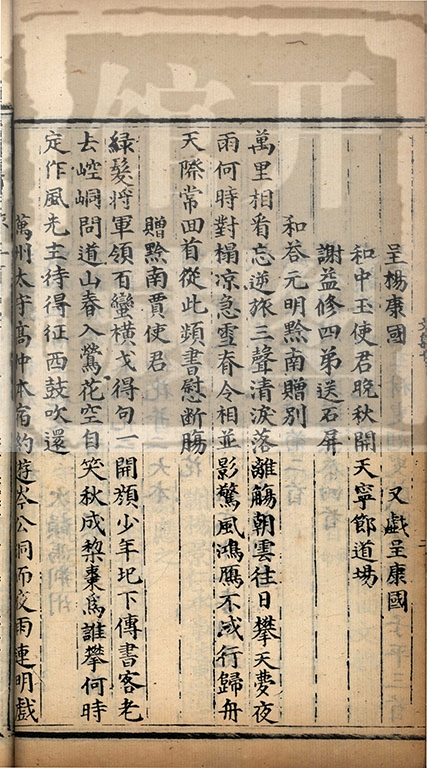 呈楊康國　又戲呈康國
和中玉使君晚秋開天寧節道場
謝益修四弟送石屏
和荅元明黔南贈別
萬里相看忘逆旅三聲清淚落離觴朝雲往日攀天夢夜
雨何時對榻凉急雪脊令相並影驚風鴻鴈不成行歸舟
天際常回首從此頻書慰斷腸
贈黔南賈使君
緑髮將軍領百蠻橫戈得句一開顏少年圯下傳書客老
去崆峒問道山春入鶯花空自笑秋成棃棗爲誰攀何時
定作風先主待得征西鼓吹還
萬州太守高仲本宿約遊岑公洞而夜雨連明戲